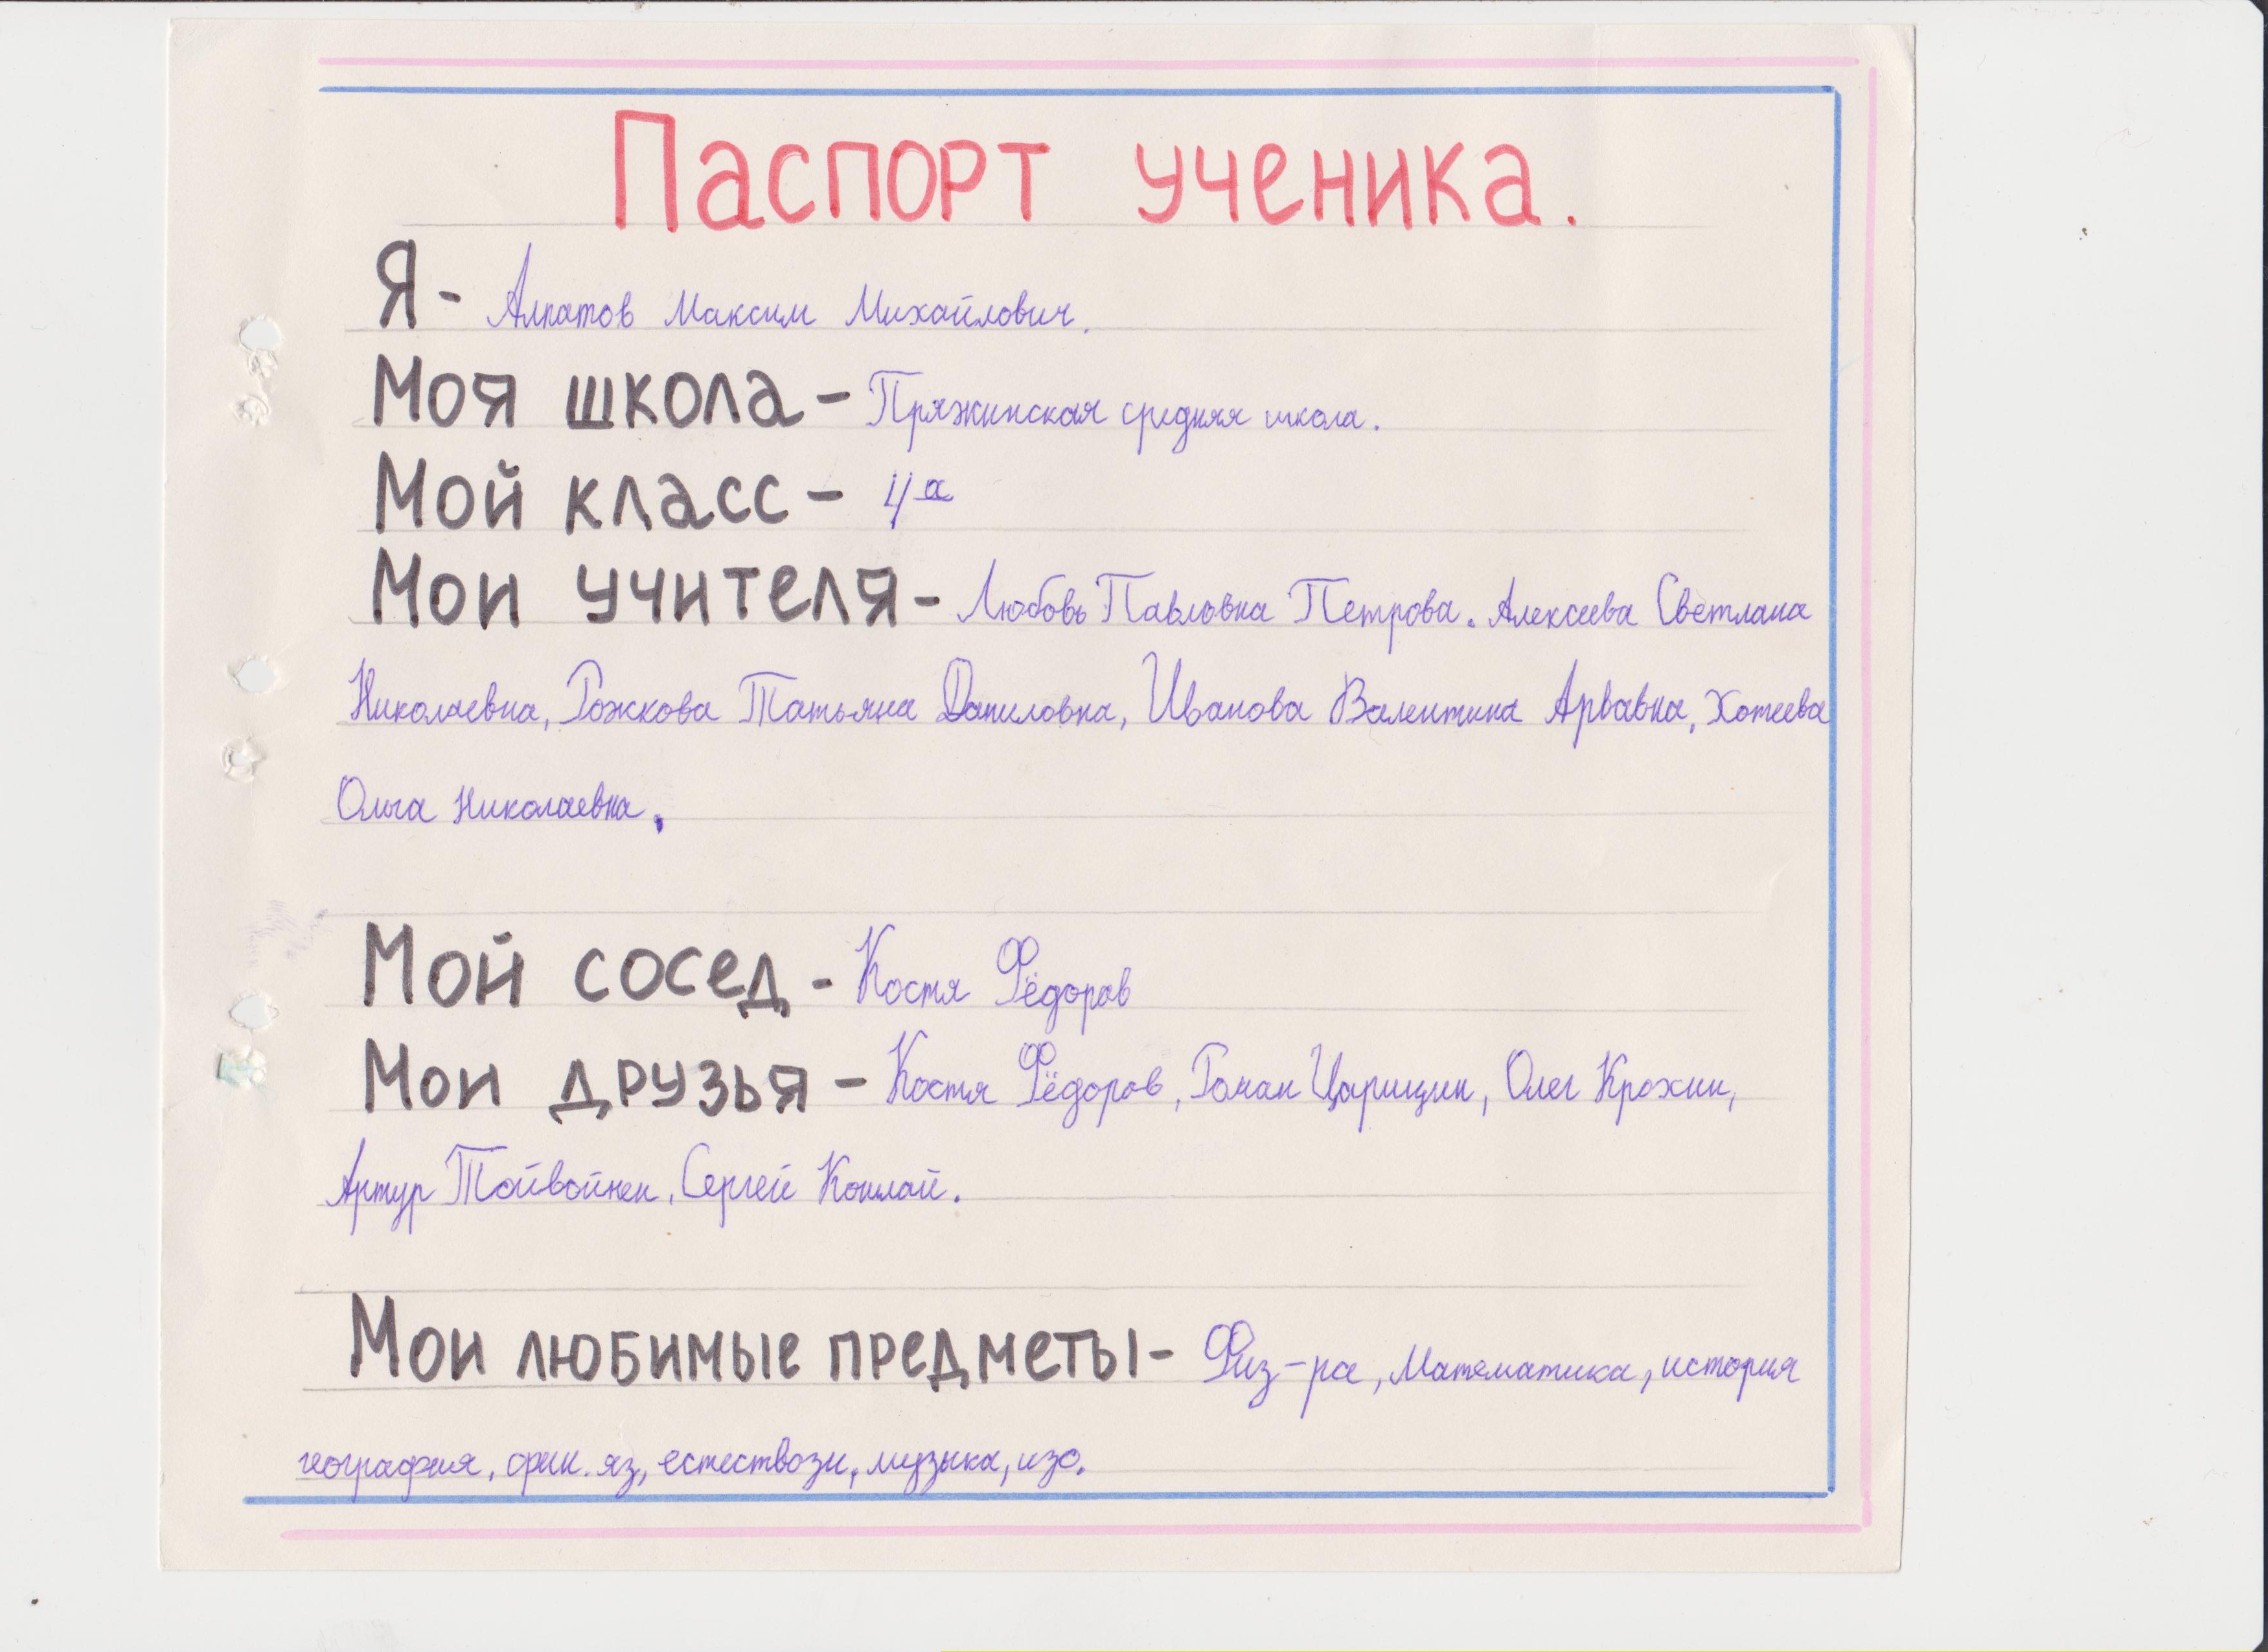 Паспорт ученика.
Я - Алпатов Максим Михайлович.
Моя школа - Пряжинская средняя школа.
Мой класс - 4а
Мои учителя - Любовь Павловна Петрова. Алексеева Светлана
Николаевна, Рожкова Татьяна Даниловна, Иванова Валентина Арвавна, Хотеева
Ольга Николаевна.
Мой сосед - Костя Фёдоров
Мои друзья - Костя Фёдоров, Роман Царицин, Олег Крохин,
Артур Тойвойнен, Сергей
Мои любимые предметы - Физ-ра, Математика, история
география, фин. яз, естествозн, музыка, изо.